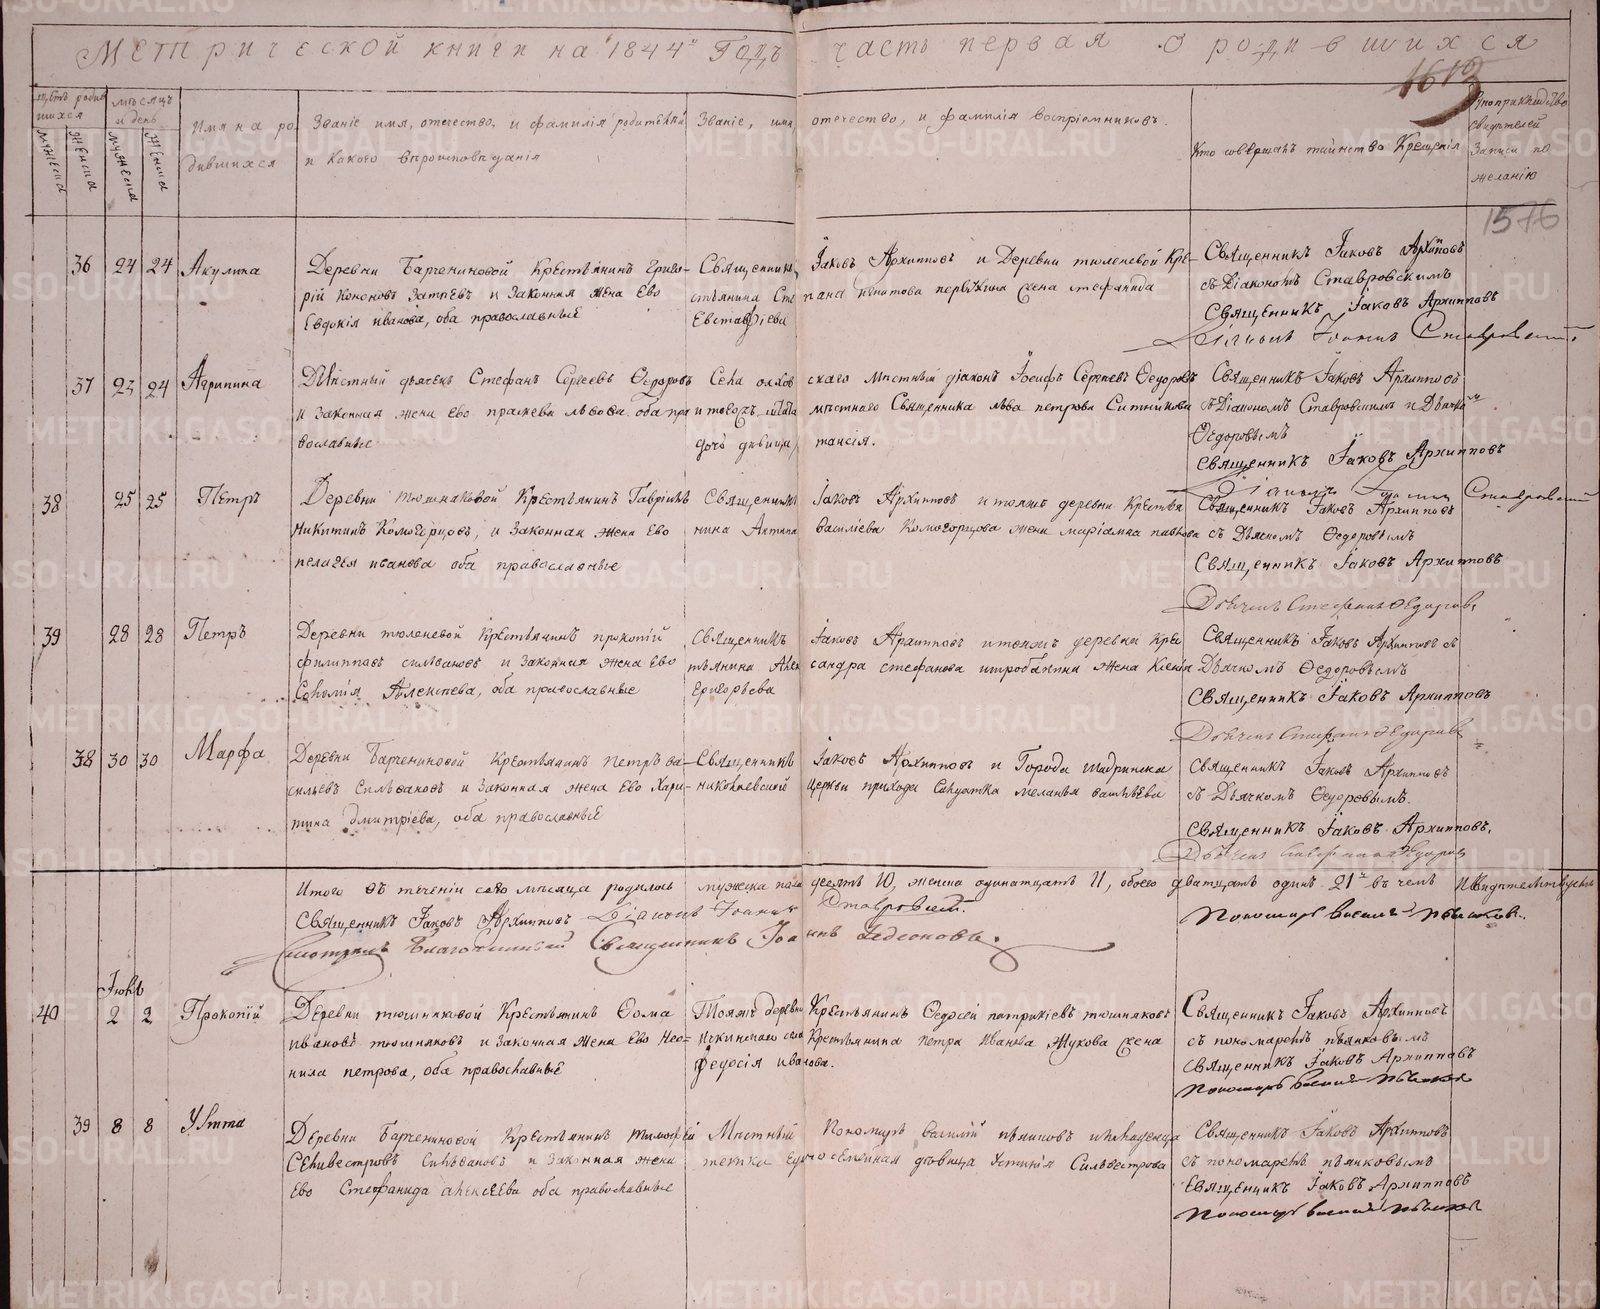 Метрической книги на 1844 Годъ часть первая о родившихся
1613
1576
щетъ родившихся
мѣсяцъ и день
Имяна родившихся
Званіе имя, отечество, и фамилія родителей и какого вѣроисповѣданія
Званіе, имя, отечество, и фамилія воспріемниковъ.
Кто совершалъ таинство Крещенія
Рукоприкладство свидѣтелей записи по желанію
мужеска
женска
мужеска
женска
36 24 24 Акулина
Деревни Барчениновой Крестьянинъ Григо-
рій Кононовъ и Законная жена Ево
Евдокія иванова, оба православные
Священникъ Іаковъ Архипповъ и Деревни тюленевой Кре-
стьянина первушина жена стефанида
Евстафіева
Священникъ Іаковъ Архипповъ
съ Діакономъ Ставровскимъ
Священникъ Іаковъ Архипповъ
Діаконъ Іоаннъ Ставровскій
37 23 24 Агрипина
Мѣстный дьячекъ Стефанъ Сергеевъ Ѳедоровъ
и Законная жена ево львова оба пра-
вославные
Села скаго мѣстный діаконъ Іосифъ Сергѣевъ Ѳедоровъ
мѣстнаго Священника льва петрова Ситникова
дочь дѣвица таисія.
Священникъ Іаковъ Архипповъ
съ Діакономъ Ставровскимъ и Дьячкомъ
Ѳедоровымъ
Священникъ Іаковъ Архипповъ
Діаконъ Іоаннъ Ставровскій
38 25 25 Петръ
Деревни тюшняковой Крестьянинъ Гаврилъ
Никитинъ Коможерцовъ, и Законная жена Ево
пелагея иванова оба православные
Священникъ Іаковъ Архипповъ и тояжъ деревни Крестья
нина Антипа василіева Коможерцова жена маріамна павлова
Священникъ Іаковъ Архипповъ
съ Дьячкомъ Ѳедоровымъ
Священникъ Іаковъ Архипповъ
Дьячекъ Стефанъ Ѳедоровъ
39 28 28 Петръ
Деревни тюленевой Крестьянинъ прокопій
филипповъ силвановъ и Законная жена Ево
Соломія Алексѣева, оба православные
Священникъ Іаковъ Архипповъ и тояжъ деревни Кре
стьянина Алек сандра стефанова жена Ксенія
григорьева
Священникъ Іаковъ Архипповъ съ
Дьячкомъ Ѳедоровымъ
Священникъ Іаковъ Архипповъ
Дьячекъ Стефанъ Ѳедоровъ
38 30 30 Марфа
Деревни Барчениновой Крестьянинъ Петръ ва-
сильевъ Силвановъ и Законная жена Ево Хари-
тина Дмитріева, оба православные
Священникъ Іаковъ Архипповъ и Города Шадринска
николаевской церкви прихода Солдатка Меланья
Священникъ Іаковъ Архипповъ
съ Дьячкомъ Ѳедоровымъ.
Священникъ Іаковъ Архипповъ,
Дьячекъ Стефанъ Ѳедоровъ
Итого въ теченіи сего мѣсяца родилось мужеска пола десять 10, женска одинатцать 11, обоего дватцать одинъ 21 въ чемъ и свидѣтельствуемъ
Священникъ Іаковъ Архипповъ Діаконъ Іоаннъ Ставровскій. Пономарь Василій Пьянковъ.
Смотрѣлъ Благочинный Священникъ Іоаннъ Гедеоновъ.
Іюнь
40 2 2 Прокопій
Деревни тюшняковой Крестьянинъ Ѳома
ивановъ тюшняковъ и Законная жена Ево Нео-
нила петрова, оба православные
Тояжъ деревни Крестьянинъ Ѳедосей патрикіевъ тюшняковъ
Ичкинскаго села Крестьянина петра Иванова Жукова жена
федосія иванова.
Священникъ Іаковъ Архипповъ
съ пономаремъ пьянковымъ
Священникъ Іаковъ Архипповъ
Пономарь Василій Пьянковъ
39 8 8 Улита
Деревни Барчениновой Крестьянинъ тимофей
Селивестровъ Силвановъ и Законная жена
Ево Стефанида алексеева оба православные
Мѣстный Пономарь василій пьянковъ и младенца
тетка едиосемейная дѣвица Устинія Сильвестрова
Священникъ Іаковъ Архипповъ
съ пономаремъ пьянковымъ
Священникъ Іаковъ Архипповъ
Пономарь Василій Пьянковъ
METRIKI.GASO-URAL.RU